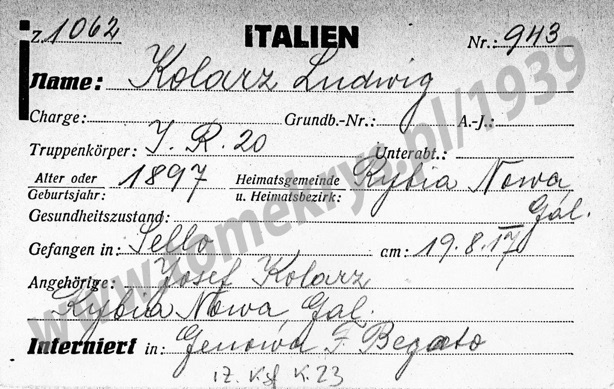 Z. 1062 ITALIEN Nr.: 943
Name: Kolarz Ludwig
Charge: Grundb.-Nr.: A.-J.:
Truppenkörper: I. R. 20 Unterabt.:
Alter oder Geburtsjahr: 1897 Heimatsgemeinde u. Heimatsbezirk: Rybia Nowa
Gal.
Gesundheitszustand:
Gefangen in: Sello am: 19.8.17
Angehörige: Josef Kolarz
Rybia Nowa Gal.
Interniert in: Genowa F. Begato
K. 23
www.tomekrys.pl/1939